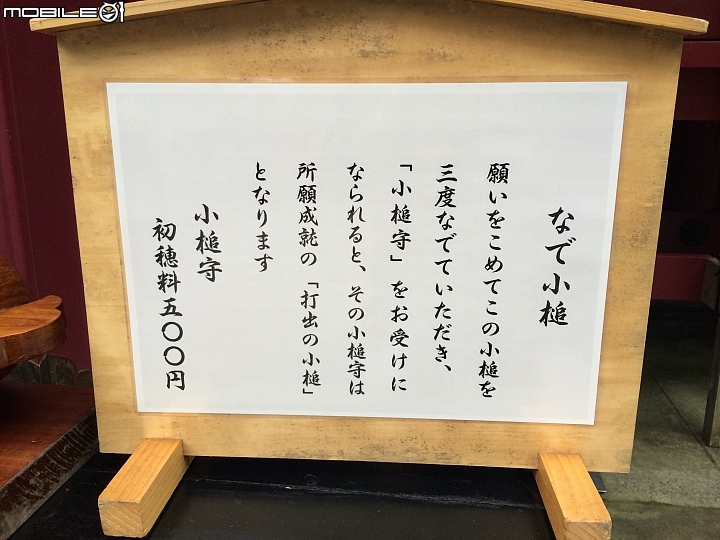 MOBILE01
なで小槌
願いをこめてこの小槌を
三度なでていただき、
「小槌守」をお受けに
なられると、その小槌守は
所願成就の「打出の小槌」
となります
小槌守
初穂料五〇〇円